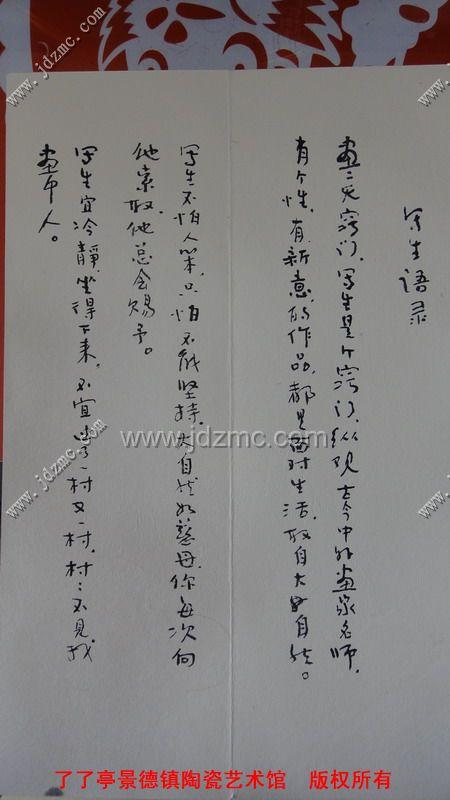 写生语录
画々无窍门,写生是个窍门,纵观古今中外画家名师,
有个性、有新意的作品,都是面对生活,取自大自然。
写生不怕人笨,只怕不能坚持,大自然如慈母,你每次向
他索取,他总会赐予。
写生宜冷静,坐得下来,不宜了一村又一村,村々不见我
画中人。
www.jdzmc.com
www.jdzmc.com
www.jdzmc.com
www.jdzmc.com
www.jdzmc.com
了了亭景德镇陶瓷艺术馆 版权所有